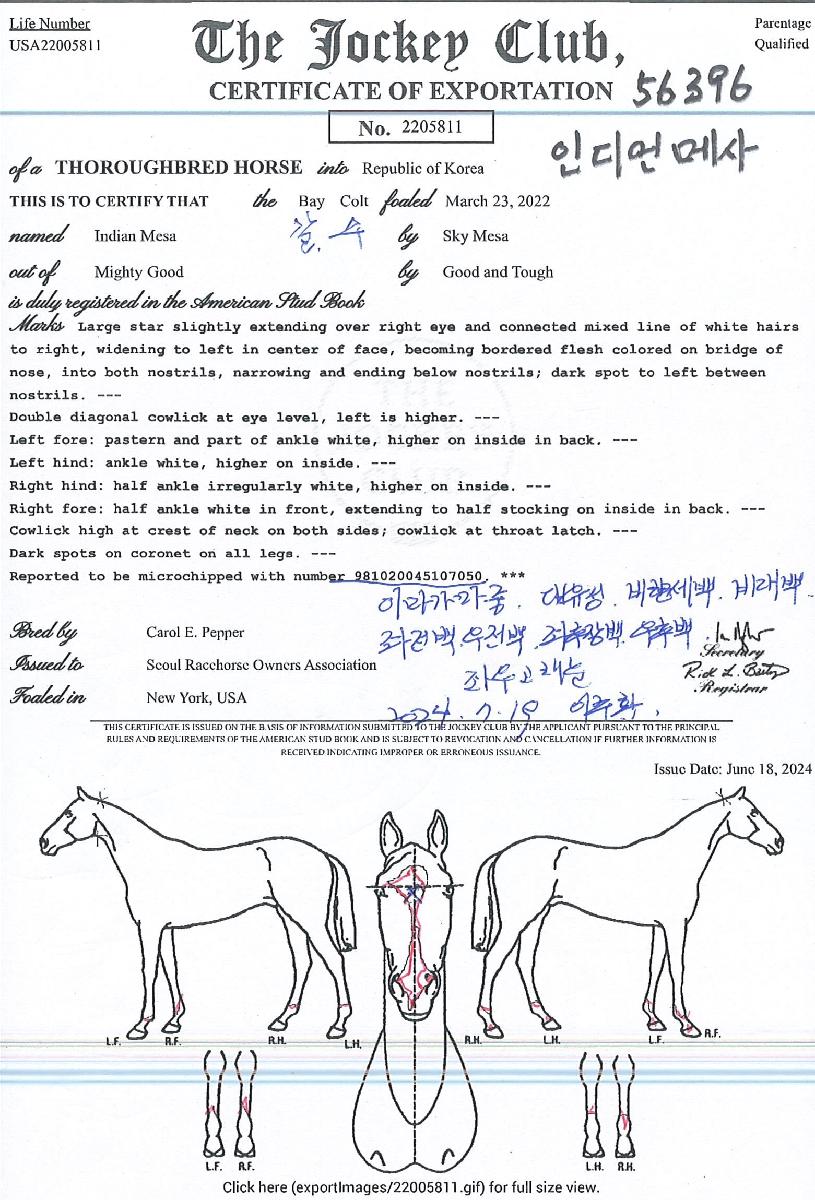 Life Number
USA22005811
The Jockey Club,
Parentage
Qualified
CERTIFICATE OF EXPORTATION
56396
No. 2205811
인디언메사
of a THOROUGHBRED HORSE into Republic of Korea
THIS IS TO CERTIFY THAT the Bay Colt foaled March 23, 2022
named Indian Mesa 갈. 수 by Sky Mesa
out of Mighty Good by Good and Tough
is duly registered in the American Stud Book
Marks Large star slightly extending over right eye and connected mixed line of white hairs
to right, widening to left in center of face, becoming bordered flesh colored on bridge of
nose, into both nostrils, narrowing and ending below nostrils; dark spot to left between
nostrils. ---
Double diagonal cowlick at eye level, left is higher. ---
Left fore: pastern and part of ankle white, higher on inside in back. ---
Left hind: ankle white, higher on inside. ---
Right hind: half ankle irregularly white, higher on inside. ---
Right fore: half ankle white in front, extending to half stocking on inside in back. ---
Cowlick high at crest of neck on both sides; cowlick at throat latch. ---
Dark spots on coronet on all legs. ---
Reported to be microchipped with number 981020045107050. ***
이라가마중. 대유성. 비대백.
Bred by Carol E. Pepper
좌전백. 우전백. 우후백.
Secretary
Issued to Seoul Racehorse Owners Association
Registrar
Foaled in New York, USA
2024. 7. 18
THIS CERTIFICATE IS ISSUED ON THE BASIS OF INFORMATION SUBMITTED TO THE JOCKEY CLUB BY THE APPLICANT PURSUANT TO THE PRINCIPAL
RULES AND REQUIREMENTS OF THE AMERICAN STUD BOOK AND IS SUBJECT TO REVOCATION AND CANCELLATION IF FURTHER INFORMATION IS
RECEIVED INDICATING IMPROPER OR ERRONEOUS ISSUANCE.
Issue Date: June 18, 2024
L.F. R.F. R.H. L.H. R.H. L.H. L.F. R.F.
L.F. R.F. L.H. R.H.
Click here (exportImages/22005811.gif) for full size view.